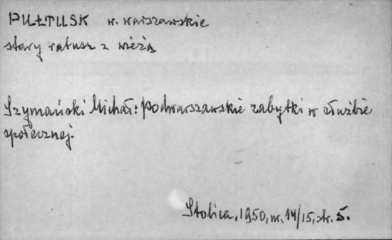 PUŁTUSK w. warszawskie
stary ratusz z wieżą
Szymański Michał: Podwarszawskie zabytki w służbie
społecznej.
Stolica, 1950, nr. 14/15, str. 5.